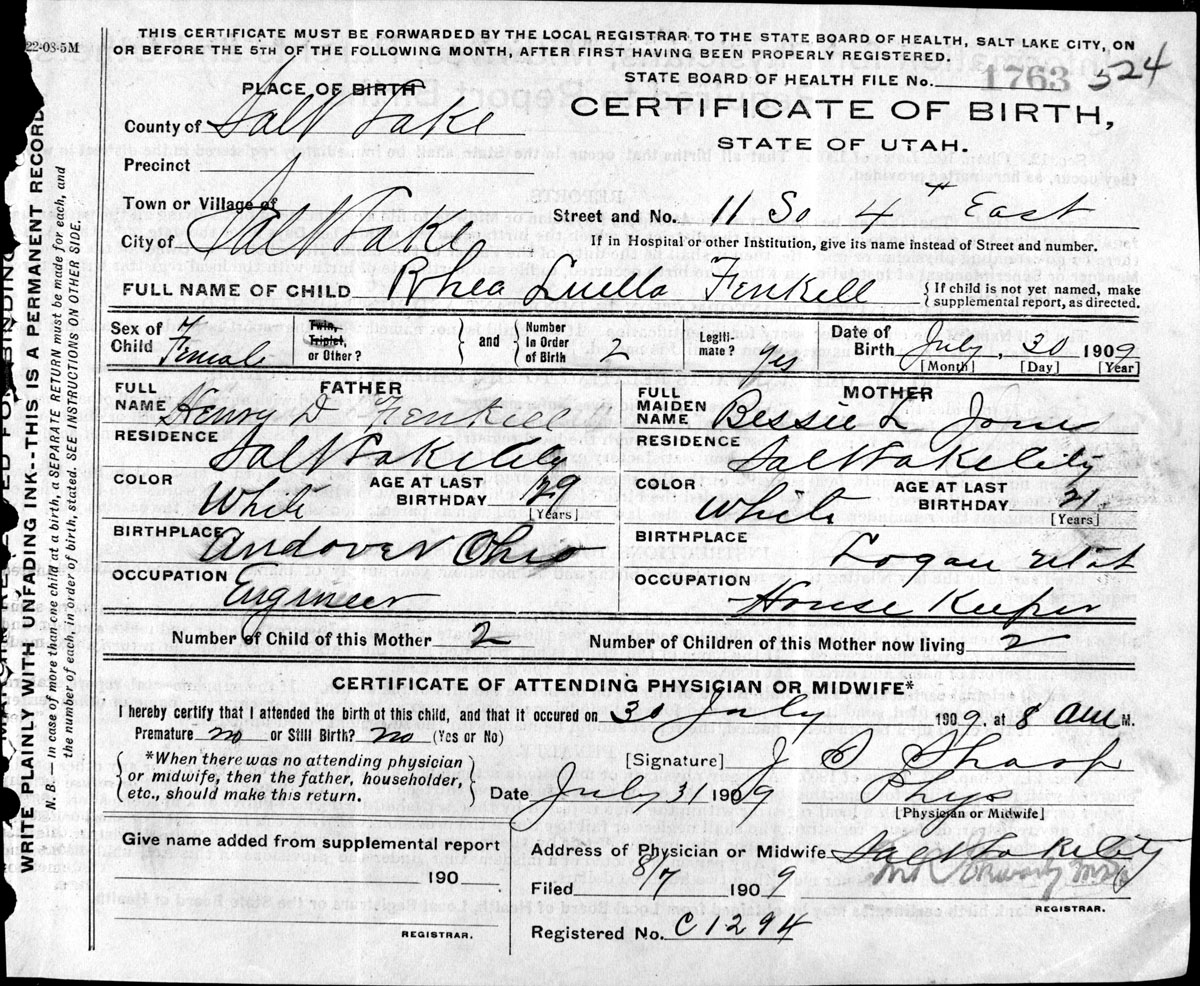 22-08-5M
THIS CERTIFICATE MUST BE FORWARDED BY THE LOCAL REGISTRAR TO THE STATE BOARD OF HEALTH, SALT LAKE CITY, ON
OR BEFORE THE 5TH OF THE FOLLOWING MONTH, AFTER FIRST HAVING BEEN PROPERLY REGISTERED.
STATE BOARD OF HEALTH FILE No. 1763 524
PLACE OF BIRTH
CERTIFICATE OF BIRTH,
County of Salt Lake
STATE OF UTAH.
Precinct
Town or Village of
Street and No. 11 So 4th East
City of Salt Lake
If in Hospital or other Institution, give its name instead of Street and number.
FULL NAME OF CHILD Rhea Luella Fenkell { If child is not yet named, make
supplemental report, as directed.
Sex of Child Female Twin, Triplet, or Other? } and { Number In Order of Birth 2 Legiti-mate? yes Date of Birth July, 30 1909
[Month] [Day] [Year]
FATHER MOTHER
FULL NAME Henry D Fenkell FULL MAIDEN NAME Bessie L Jones
RESIDENCE Salt Lake City RESIDENCE Salt Lake City
COLOR White AGE AT LAST BIRTHDAY 29 [Years] COLOR White AGE AT LAST BIRTHDAY 21 [Years]
BIRTHPLACE Andover Ohio BIRTHPLACE Logan Utah
OCCUPATION Engineer OCCUPATION House Keeper
Number of Child of this Mother 2 Number of Children of this Mother now living 2
CERTIFICATE OF ATTENDING PHYSICIAN OR MIDWIFE*
I hereby certify that I attended the birth of this child, and that it occured on 30 July 1909, at 8 am M.
Premature no or Still Birth? no (Yes or No)
*When there was no attending physician
or midwife, then the father, householder,
etc., should make this return.
[Signature] J
Date July 31 1909 Phys
[Physician or Midwife]
Give name added from supplemental report
190
REGISTRAR.
Address of Physician or Midwife Salt Lake City
Filed 8/7 1909
REGISTRAR.
Registered No. C1294
WRITE PLAINLY WITH UNFADING INK--THIS IS A PERMANENT RECORD
N. B.—In case of more than one child at a birth, a SEPARATE RETURN must be made for each, and
the number of each, in order of birth, stated. SEE INSTRUCTIONS ON OTHER SIDE.